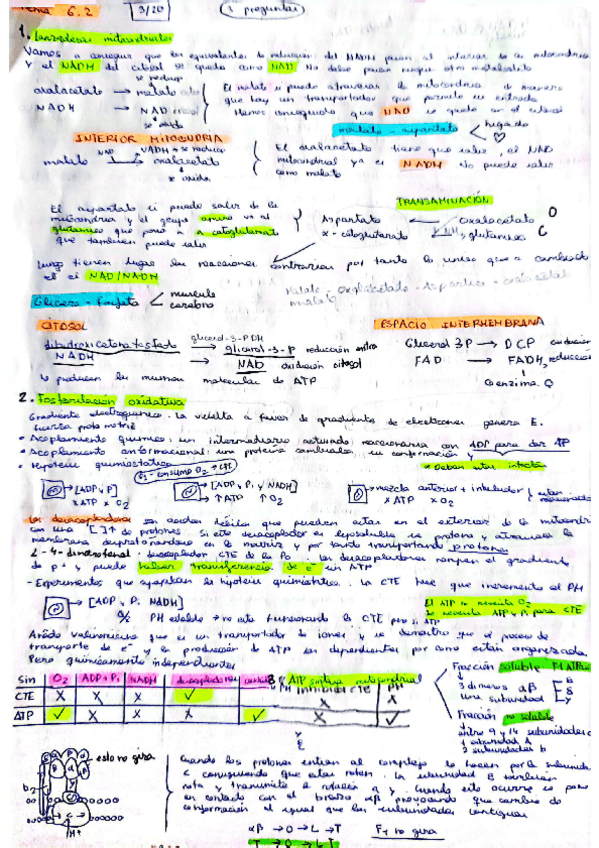 Tema 6.2 3/20 2 preguntas
1. Lanzaderas mitocondriales
Vamos a conseguir que los equivalentes de reducción del NADH pasen al interior de la mitocondria
Y el NADH del citosol se queda como NAD. No debe pasar ningún otro metabolito
se reduce
oxalacetato → malato
NADH → NAD citosol
se oxida
El malato sí puede atravesar la mitocondria de manera
que hay un transportador que permite su entrada
Hemos conseguido que NAD se quede en el citosol
malato - aspartato < hígado
INTERIOR MITOCONDRIA
NAD NADH → se reduce
malato → oxalacetato
se oxida
El oxalacetato tiene que salir, el NAD
mitocondrial ya es NADH. No puede salir
como malato
TRANSAMINACIÓN
El aspartato sí puede salir de la
mitocondria y el grupo amino va al
glutamato que pasa a α cetoglutarato
que también puede salir
Aspartato ← oxalacetato
α-cetoglutarato NH₂ glutamato
luego tienen lugar las reacciones contrarias por tanto lo único que ha cambiado
es el NAD/NADH
Malato - Oxalacetato - Aspartato - oxalacetato
malato
Glicerol-fosfato < músculo
cerebro
CITOSOL
ESPACIO INTERMEMBRANA
glicerol-3-PDH
dihidroxicetona fosfato → glicerol-3-P reducción
NADH → NAD oxidación citosol
Glicerol 3P → DCP oxidación
FAD → FADH₂ reducción
Coenzima Q
se producen las mismas moléculas de ATP
2. Fosforilación oxidativa
Gradiente electroquímico. La vuelta a favor de gradiente de electrones genera E.
fuerza proto motriz
• Acoplamiento químico: un intermediario activado reaccionaría con ADP para dar ATP
• Acoplamiento conformacional: una proteína cambiaba su conformación y
• Hipótesis quimiosmótica
O₂ - consumo O₂ → CTE
* Deben estar intactas
→ [ADP y Pi]
x ATP x O₂
→ [ADP, Pi y NADH]
↑ ATP ↑ O₂
→ mezcla anterior + inhibidor
x ATP x O₂
están relacionados
Los desacopladores son ácidos débiles que pueden estar en el exterior de la mitocondria
con una [ ]↑ de protones. Si este desacoplador es liposoluble se protona y atraviesa la
membrana desprotonándose en la matriz y por tanto transportando protones
2-4-dinitrofenol: desacoplador CTE de la Po. Los desacopladores rompen el gradiente
de p+ y puede haber transferencia de e- sin ATP
- Experimentos que apoyaban la hipótesis quimiosmótica. La CTE hace que incremente el PH
→ [ADP, Pi, NADH]
O₂ PH estable → no está funcionando la CTE pero sí ATP
El ATP no necesita O₂
Se necesita ATP y Pi para CTE
Añado valinomicina que es un transportador de iones y se demuestra que el proceso de
transporte de e- y la producción de ATP son dependientes por como están organizados
Pero químicamente independientes
Sin O₂ ADP+Pi NADH desacopladores
CTE X X X ✓
ATP ✓ X X ✓
ATP sintasa mitocondrial
PH inhibidor CTE PH
X X
X ✓
Fracción soluble F1 ATPasa
3 dímeros αβ
una subunidad
Fracción no soluble
entre 9 y 14 subunidades c
1 subunidad a
2 subunidades b
esto no gira
Cuando los protones entran al complejo lo hacen por la subunidad
c consiguiendo que estas roten. La subunidad ε también
rota y transmite la rotación a γ. Cuando esto ocurre se pone
en contacto con el brazo αβ provocando que cambie de
conformación al igual que las subunidades contiguas
αβ → O → L → T
F1 no gira
T → O → L T
b₂
C
H+